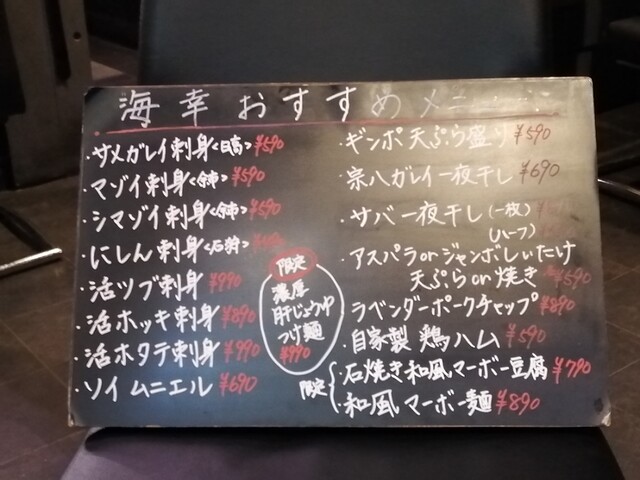 海幸おすすめメニュー
・サメガレイ刺身<日高>¥590
・マゾイ刺身<余市>¥590
・シマゾイ刺身<余市>¥590
・にしん刺身<石狩>
・活ツブ刺身 ¥990
・活ホッキ刺身 ¥890
・活ホタテ刺身 ¥990
・ソイ ムニエル ¥690
限定
濃厚
肝じょうゆ
つけ麺
¥990
・ギンポ 天ぷら盛り ¥590
・宗八ガレイ一夜干し ¥690
・サバ一夜干し(一枚)
(ハーフ)
・アスパラorジャンボしいたけ
天ぷらor焼き 各¥590
・ラベンダーポークチャップ ¥890
・自家製 鶏ハム ¥590
限定
・石焼き和風マーボー豆腐 ¥790
・和風マーボー麺 ¥890